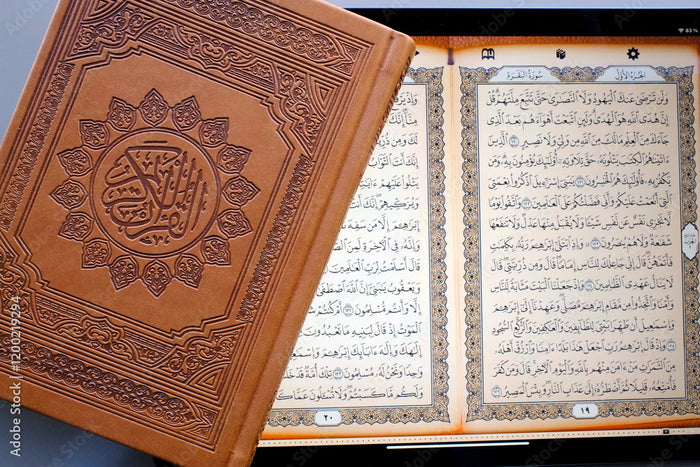 القرآن الكريم
83 %
سُورَةُ البَقَرَة
١٩
الجُزءُ الأوّل
وَلَن تَرْضَىٰ عَنكَ الْيَهُودُ وَلَا النَّصَٰرَىٰ حَتَّىٰ تَتَّبِعَ مِلَّتَهُمْ قُلْ
إِنَّ هُدَى اللَّهِ هُوَ الْهُدَىٰ وَلَئِنِ اتَّبَعْتَ أَهْوَاءَهُم بَعْدَ الَّذِي
جَاءَكَ مِنَ الْعِلْمِ مَا لَكَ مِنَ اللَّهِ مِن وَلِيٍّ وَلَا نَصِيرٍ ١٢٠ الَّذِينَ
ءَاتَيْنَٰهُمُ الْكِتَٰبَ يَتْلُونَهُ حَقَّ تِلَاوَتِهِ أُولَٰئِكَ يُؤْمِنُونَ بِهِ وَمَن
يَكْفُرْ بِهِ فَأُولَٰئِكَ هُمُ الْخَٰسِرُونَ ١٢١ يَٰبَنِي إِسْرَٰءِيلَ اذْكُرُوا نِعْمَتِيَ
الَّتِي أَنْعَمْتُ عَلَيْكُمْ وَأَنِّي فَضَّلْتُكُمْ عَلَى الْعَٰلَمِينَ ١٢٢ وَاتَّقُوا يَوْمًا
لَّا تَجْزِي نَفْسٌ عَن نَّفْسٍ شَيْئًا وَلَا يُقْبَلُ مِنْهَا عَدْلٌ وَلَا تَنفَعُهَا
شَفَٰعَةٌ وَلَا هُمْ يُنصَرُونَ ١٢٣ وَإِذِ ابْتَلَىٰ إِبْرَٰهِيمَ رَبُّهُ بِكَلِمَٰتٍ
فَأَتَمَّهُنَّ قَالَ إِنِّي جَاعِلُكَ لِلنَّاسِ إِمَامًا قَالَ وَمِن ذُرِّيَّتِي قَالَ
لَا يَنَالُ عَهْدِي الظَّٰلِمِينَ ١٢٤ وَإِذْ جَعَلْنَا الْبَيْتَ مَثَابَةً لِّلنَّاسِ
وَأَمْنًا وَاتَّخِذُوا مِن مَّقَامِ إِبْرَٰهِيمَ مُصَلًّى وَعَهِدْنَا إِلَىٰ إِبْرَٰهِيمَ
وَإِسْمَٰعِيلَ أَن طَهِّرَا بَيْتِيَ لِلطَّائِفِينَ وَالْعَٰكِفِينَ وَالرُّكَّعِ السُّجُودِ
١٢٥ وَإِذْ قَالَ إِبْرَٰهِيمُ رَبِّ اجْعَلْ هَٰذَا بَلَدًا ءَامِنًا وَارْزُقْ أَهْلَهُ
مِنَ الثَّمَرَٰتِ مَنْ ءَامَنَ مِنْهُم بِاللَّهِ وَالْيَوْمِ الْءَاخِرِ قَالَ وَمَن كَفَرَ
فَأُمَتِّعُهُ قَلِيلًا ثُمَّ أَضْطَرُّهُ إِلَىٰ عَذَابِ النَّارِ وَبِئْسَ الْمَصِيرُ ١٢٦
١٩
وَإِذْ يَرْ
مِنَّا إِنَّكَ
إِنَّكَ أَنتَ التَّوَّا
يَتْلُوا عَلَيْهِمْ ءَايَٰ
وَيُزَكِّيهِمْ إِنَّكَ أَنتَ
إِبْرَٰهِيمَ إِلَّا مَن سَفِهَ نَفْ
وَإِنَّهُ فِي الْءَاخِرَةِ لَمِ
قَالَ أَسْلَمْتُ لِرَبِّ الْعَٰلَمِينَ
وَيَعْقُوبُ يَٰبَنِيَّ إِنَّ اللَّهَ اصْطَفَىٰ
إِلَّا وَأَنتُم مُّسْلِمُونَ ١٣٢ أَمْ كُنتُمْ شُ
الْمَوْتُ إِذْ قَالَ لِبَنِيهِ مَا تَعْبُدُونَ
إِلَٰهَكَ وَإِلَٰهَ ءَابَائِكَ إِبْرَٰهِيمَ وَإِسْمَٰعِ
وَٰحِدًا وَنَحْنُ لَهُ مُسْلِمُونَ ١٣٣ تِلْكَ أُمَّةٌ قَدْ
وَلَكُم مَّا كَسَبْتُمْ وَلَا تُسْـَٔلُونَ عَمَّا
٢٠
Adobe Stock | #1200219294